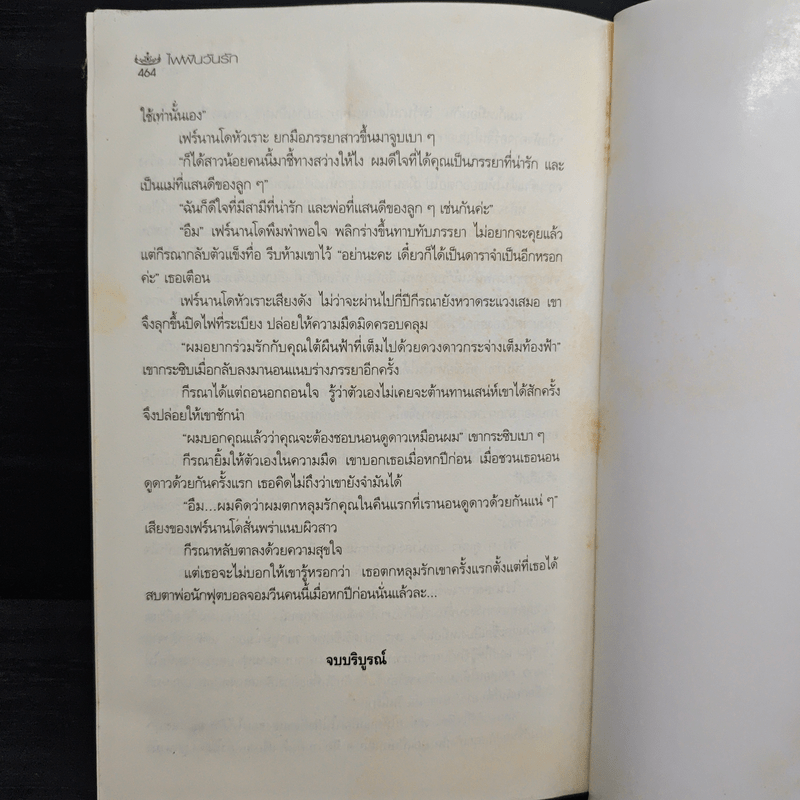 ไฟฝันวันรัก
464
ใช้เท่านั้นเอง”
เฟร์นานโดหัวเราะ ยกมือภรรยาสาวขึ้นมาจูบเบา ๆ
“ก็ได้สาวน้อยคนนี้มาชี้ทางสว่างให้ไง ผมดีใจที่ได้คุณเป็นภรรยาที่น่ารัก และ
เป็นแม่ที่แสนดีของลูก ๆ”
“ฉันก็ดีใจที่มีสามีที่น่ารัก และพ่อที่แสนดีของลูก ๆ เช่นกันค่ะ”
“อืม” เฟร์นานโดพึมพำพอใจ พลิกร่างขึ้นทาบทับภรรยา ไม่อยากจะคุยแล้ว
แต่กีรณากลับตัวแข็งทื่อ รีบห้ามเขาไว้ “อย่านะคะ เดี๋ยวก็ได้เป็นดาราจำเป็นอีกหรอก
ค่ะ” เธอเตือน
เฟร์นานโดหัวเราะเสียงดัง ไม่ว่าจะผ่านไปกี่ปีกีรณายังหวาดระแวงเสมอ เขา
จึงลุกขึ้นปิดไฟที่ระเบียง ปล่อยให้ความมืดมิดครอบคลุม
“ผมอยากร่วมรักกับคุณใต้ผืนฟ้าที่เต็มไปด้วยดวงดาวกระจ่างเต็มท้องฟ้า”
เขากระซิบเมื่อกลับลงมานอนแนบร่างภรรยาอีกครั้ง
กีรณาได้แต่ถอนอกถอนใจ รู้ว่าตัวเองไม่เคยจะต้านทานเสน่ห์เขาได้สักครั้ง
จึงปล่อยให้เขาชักนำ
“ผมบอกคุณแล้วว่าคุณจะต้องชอบนอนดูดาวเหมือนผม” เขากระซิบเบา ๆ
กีรณายิ้มให้ตัวเองในความมืด เขาบอกเธอเมื่อหกปีก่อน เมื่อชวนเธอนอน
ดูดาวด้วยกันครั้งแรก เธอคิดไม่ถึงว่าเขายังจำมันได้
“อืม...ผมคิดว่าผมตกหลุมรักคุณในคืนแรกที่เรานอนดูดาวด้วยกันแน่ ๆ”
เสียงของเฟร์นานโดสั่นพร่าแนบผิวสาว
กีรณาหลับตาลงด้วยความสุขใจ
แต่เธอจะไม่บอกให้เขารู้หรอกว่า เธอตกหลุมรักเขาครั้งแรกตั้งแต่ที่เธอได้
สบตาพ่อนักฟุตบอลจอมวีนคนนี้เมื่อหกปีก่อนนั่นแล้วละ...
จบบริบูรณ์